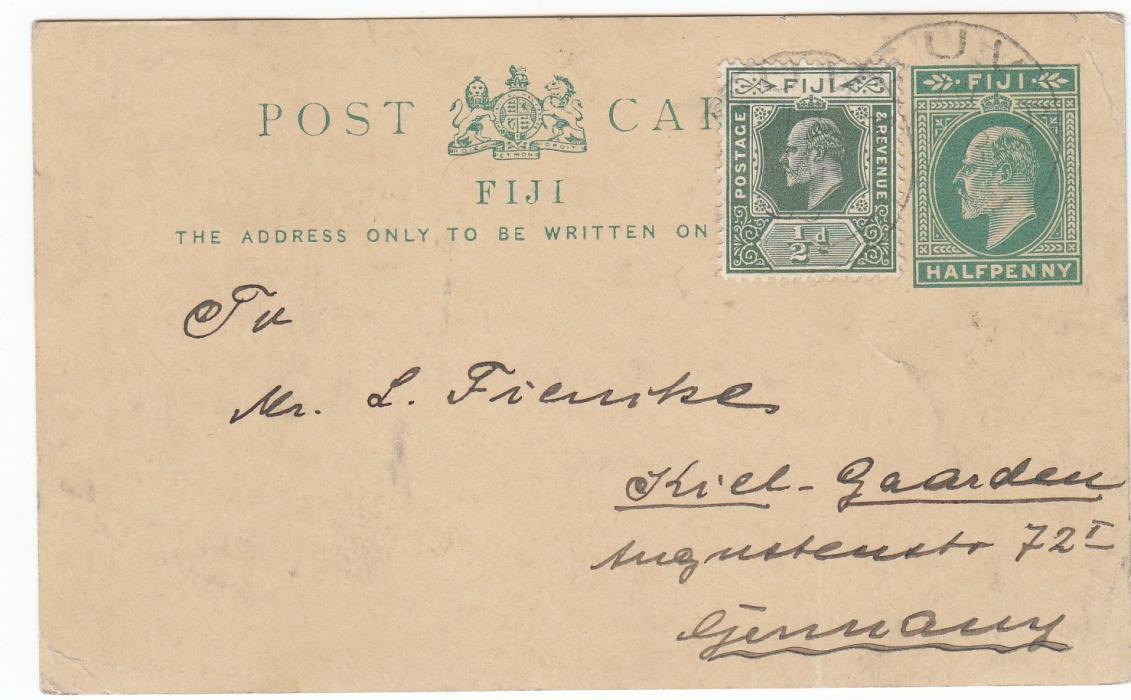 POST CAR
DIEU ET MON DROIT
FIJI
THE ADDRESS ONLY TO BE WRITTEN ON
FIJI
POSTAGE
& REVENUE
½d
FIJI
HALFPENNY
SUV
To
Mr. L. Fiencke
Kiel-Gaarden
Augustenstr 72 I
Germany